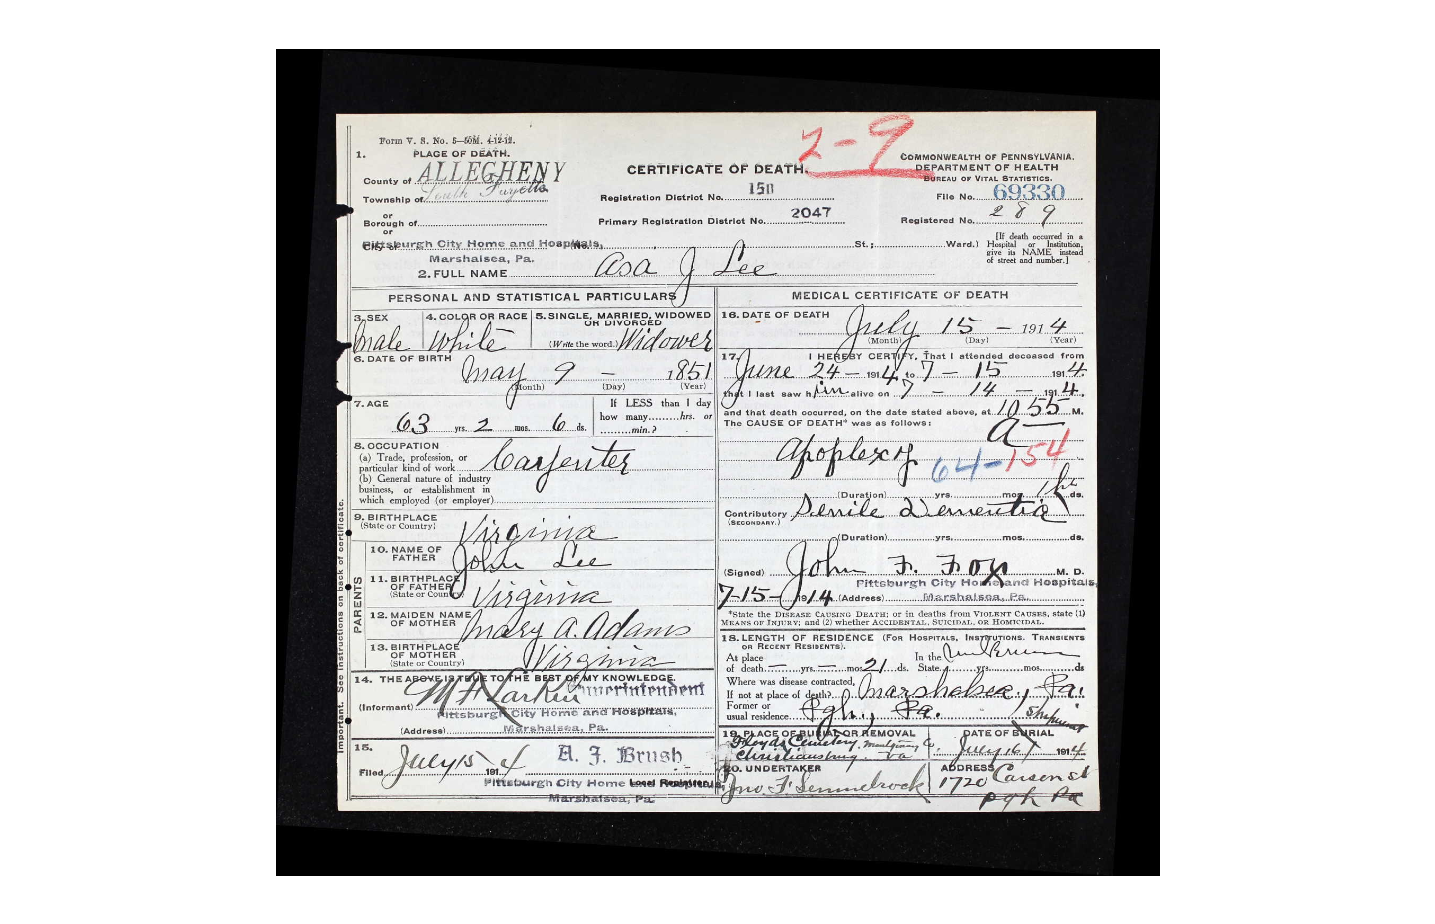 2-9
Form V. S. No. 5—50M. 4-12-12.
1. PLACE OF DEATH.
County of ALLEGHENY
Township of South Fayette
or
Borough of
or
City of
Pittsburgh City Home and Hospitals,
Marshalsea, Pa.
CERTIFICATE OF DEATH.
Registration District No. 1511
Primary Registration District No. 2047
No. St.; Ward.)
COMMONWEALTH OF PENNSYLVANIA.
DEPARTMENT OF HEALTH
BUREAU OF VITAL STATISTICS.
File No. 69330
Registered No. 289
[If death occurred in a
Hospital or Institution,
give its NAME instead
of street and number.]
2. FULL NAME Asa J Lee
PERSONAL AND STATISTICAL PARTICULARS
3. SEX
Male
4. COLOR OR RACE
White
5. SINGLE, MARRIED, WIDOWED
OR DIVORCED
(Write the word.) Widower
6. DATE OF BIRTH
May 9 — 1851
(Month) (Day) (Year)
7. AGE
63 yrs. 2 mos. 6 ds.
If LESS than 1 day
how many hrs. or
min.?
8. OCCUPATION
(a) Trade, profession, or
particular kind of work Carpenter
(b) General nature of industry
business, or establishment in
which employed (or employer)
9. BIRTHPLACE
(State or Country) Virginia
PARENTS
10. NAME OF
FATHER John Lee
11. BIRTHPLACE
OF FATHER
(State or Country) Virginia
12. MAIDEN NAME
OF MOTHER Mary A. Adams
13. BIRTHPLACE
OF MOTHER
(State or Country) Virginia
14. THE ABOVE IS TRUE TO THE BEST OF MY KNOWLEDGE.
(Informant) M H Larkin Superintendent
Pittsburgh City Home and Hospitals,
(Address) Marshalsea, Pa.
15.
Filed July 15 1914 A. J. Brush
Local Registrar.
Pittsburgh City Home and Hospitals
Marshalsea, Pa.
Important. See instructions on back of certificate.
MEDICAL CERTIFICATE OF DEATH
16. DATE OF DEATH
July 15 — 1914
(Month) (Day) (Year)
17. I HEREBY CERTIFY, That I attended deceased from
June 24 — 1914 to 7 — 15 1914
that I last saw him alive on 7 — 14 — 1914,
and that death occurred, on the date stated above, at 10 55 M.
The CAUSE OF DEATH* was as follows: a
Apoplexy 64-154
(Duration) yrs. mos. 1 hr ds.
Contributory Senile Dementia
(SECONDARY.)
(Duration) yrs. mos. ds.
(Signed) John F. Fox M. D.
Pittsburgh City Home and Hospitals,
7-15-1914 (Address) Marshalsea, Pa.
*State the DISEASE CAUSING DEATH; or in deaths from VIOLENT CAUSES, state (1)
MEANS OF INJURY; and (2) whether ACCIDENTAL, SUICIDAL, OR HOMICIDAL.
18. LENGTH OF RESIDENCE (FOR HOSPITALS, INSTITUTIONS, TRANSIENTS
OR RECENT RESIDENTS).
At place
of death — yrs. — mos. 21 ds.
In the
State Unknown yrs. mos. ds
Where was disease contracted,
If not at place of death? Marshalsea, Pa.
Former or
usual residence Pgh., Pa. Shipment
19. PLACE OF BURIAL OR REMOVAL
Floyds Cemetery, Montgomery Co.
Christiansburg Va
DATE OF BURIAL
July 16 1914
20. UNDERTAKER
Jno. F. Semmelrock
ADDRESS
1720 Carson st
Pgh Pa